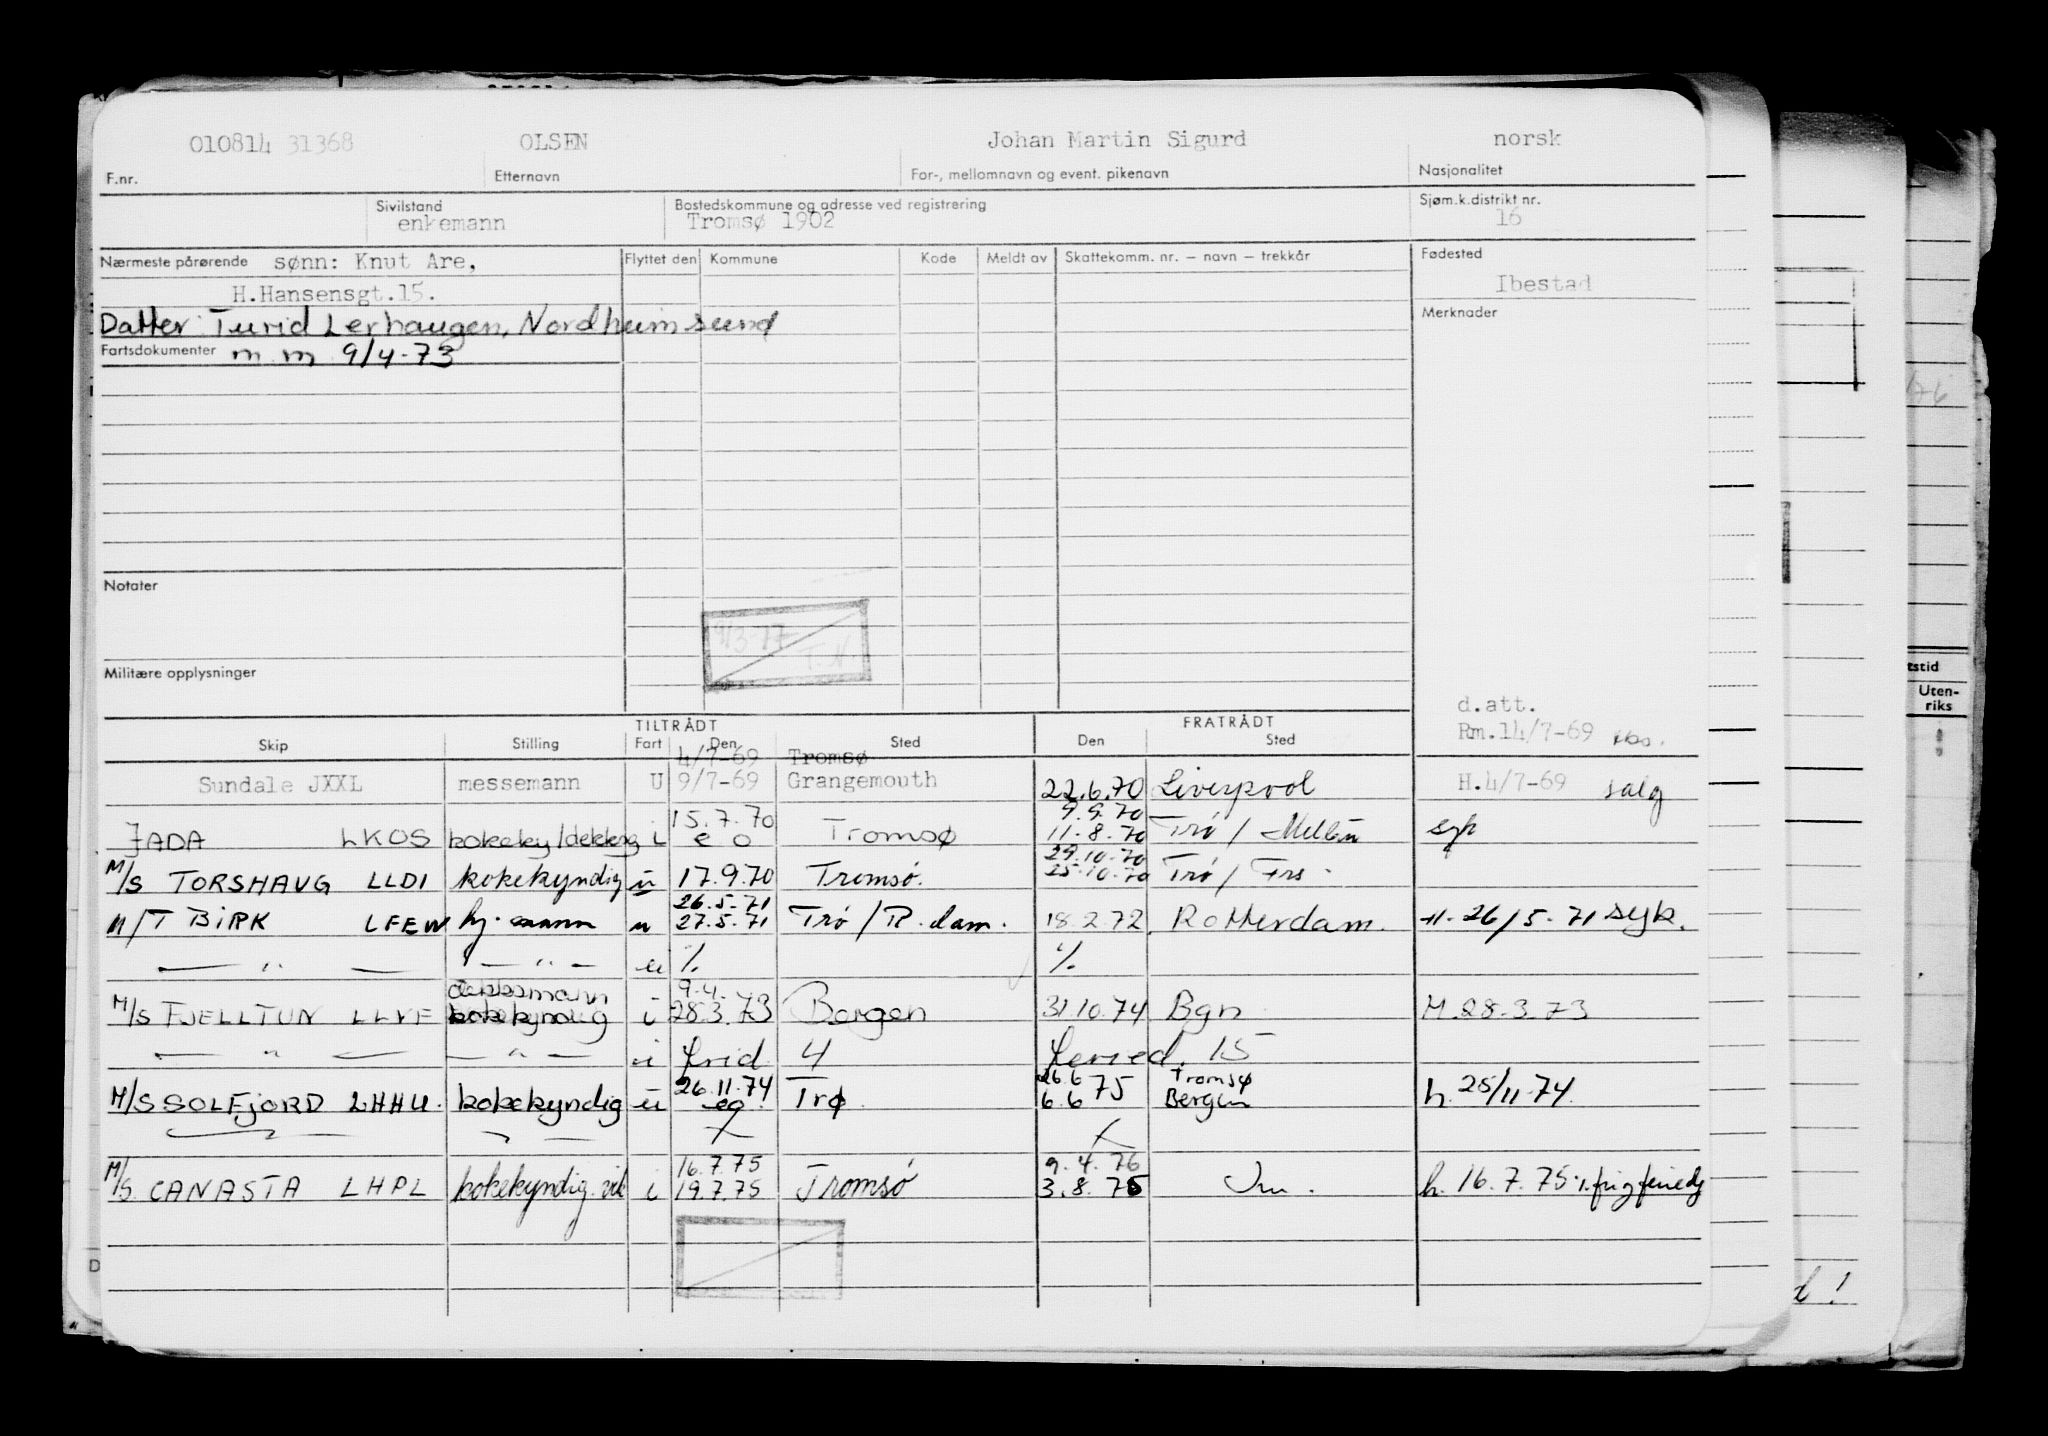 010814 31368 OLSEN Johan Martin Sigurd norsk
F.nr. Etternavn For-, mellomnavn og event. pikenavn Nasjonalitet
Sivilstand Bostedskommune og adresse ved registrering Sjøm.k.distrikt nr.
enkemann Tromsø 1902 16
Nærmeste pårørende sønn: Knut Are, Flyttet den Kommune Kode Meldt av Skattekomm. nr. – navn – trekkår Fødested
H.Hansensgt.15. Ibestad
Datter: Turid Lerhaugen, Nordheimsund Merknader
Fartsdokumenter m.m 9/4-73
Notater
9/3-77
T.N.
Militære opplysninger
d.att.
TILTRÅDT FRATRÅDT
Rm.14/7-69
Skip Stilling Fart Den Sted Den Sted
4/7-69 Tromsø
Sundale JXXL messemann U 9/7-69 Grangemouth 22.6.70 Liverpool H.4/7-69 salg
15.7.70 9.9.70
JADA LKOS i e o Tromsø 11-8.70 Trø / syk
29.10.70
M/S TORSHAVG LLDI kokekyndig u 17.9.70 Tromsø. 25.10.70 Trø /
26.5.71
M/T BIRK LFEW hj.mann u 27.5.71 Trø / R.dam. 18.2.72 Rotterdam. 26/5-71 syk.
— " — — " — u % %
dekksmann 9.4.
M/S FJELLTUN LLVF kokekyndig i 28.3.73 Bergen 31.10.74 Bgn M.28.3.73
— " — — " — i frid. 4 15
26.11.74 26.6 Tromsø
M/S SOLFJORD LHHU. kokekyndig u Trø 6.6 75 Bergen h. 25/11-74.
16.7.75 9.4.76
M/S CANASTA LHPL kokekyndig.vik i 19.7.75 Tromsø 3.8.76 h. 16.7.75
tstid
Uten-
riks
D
d!